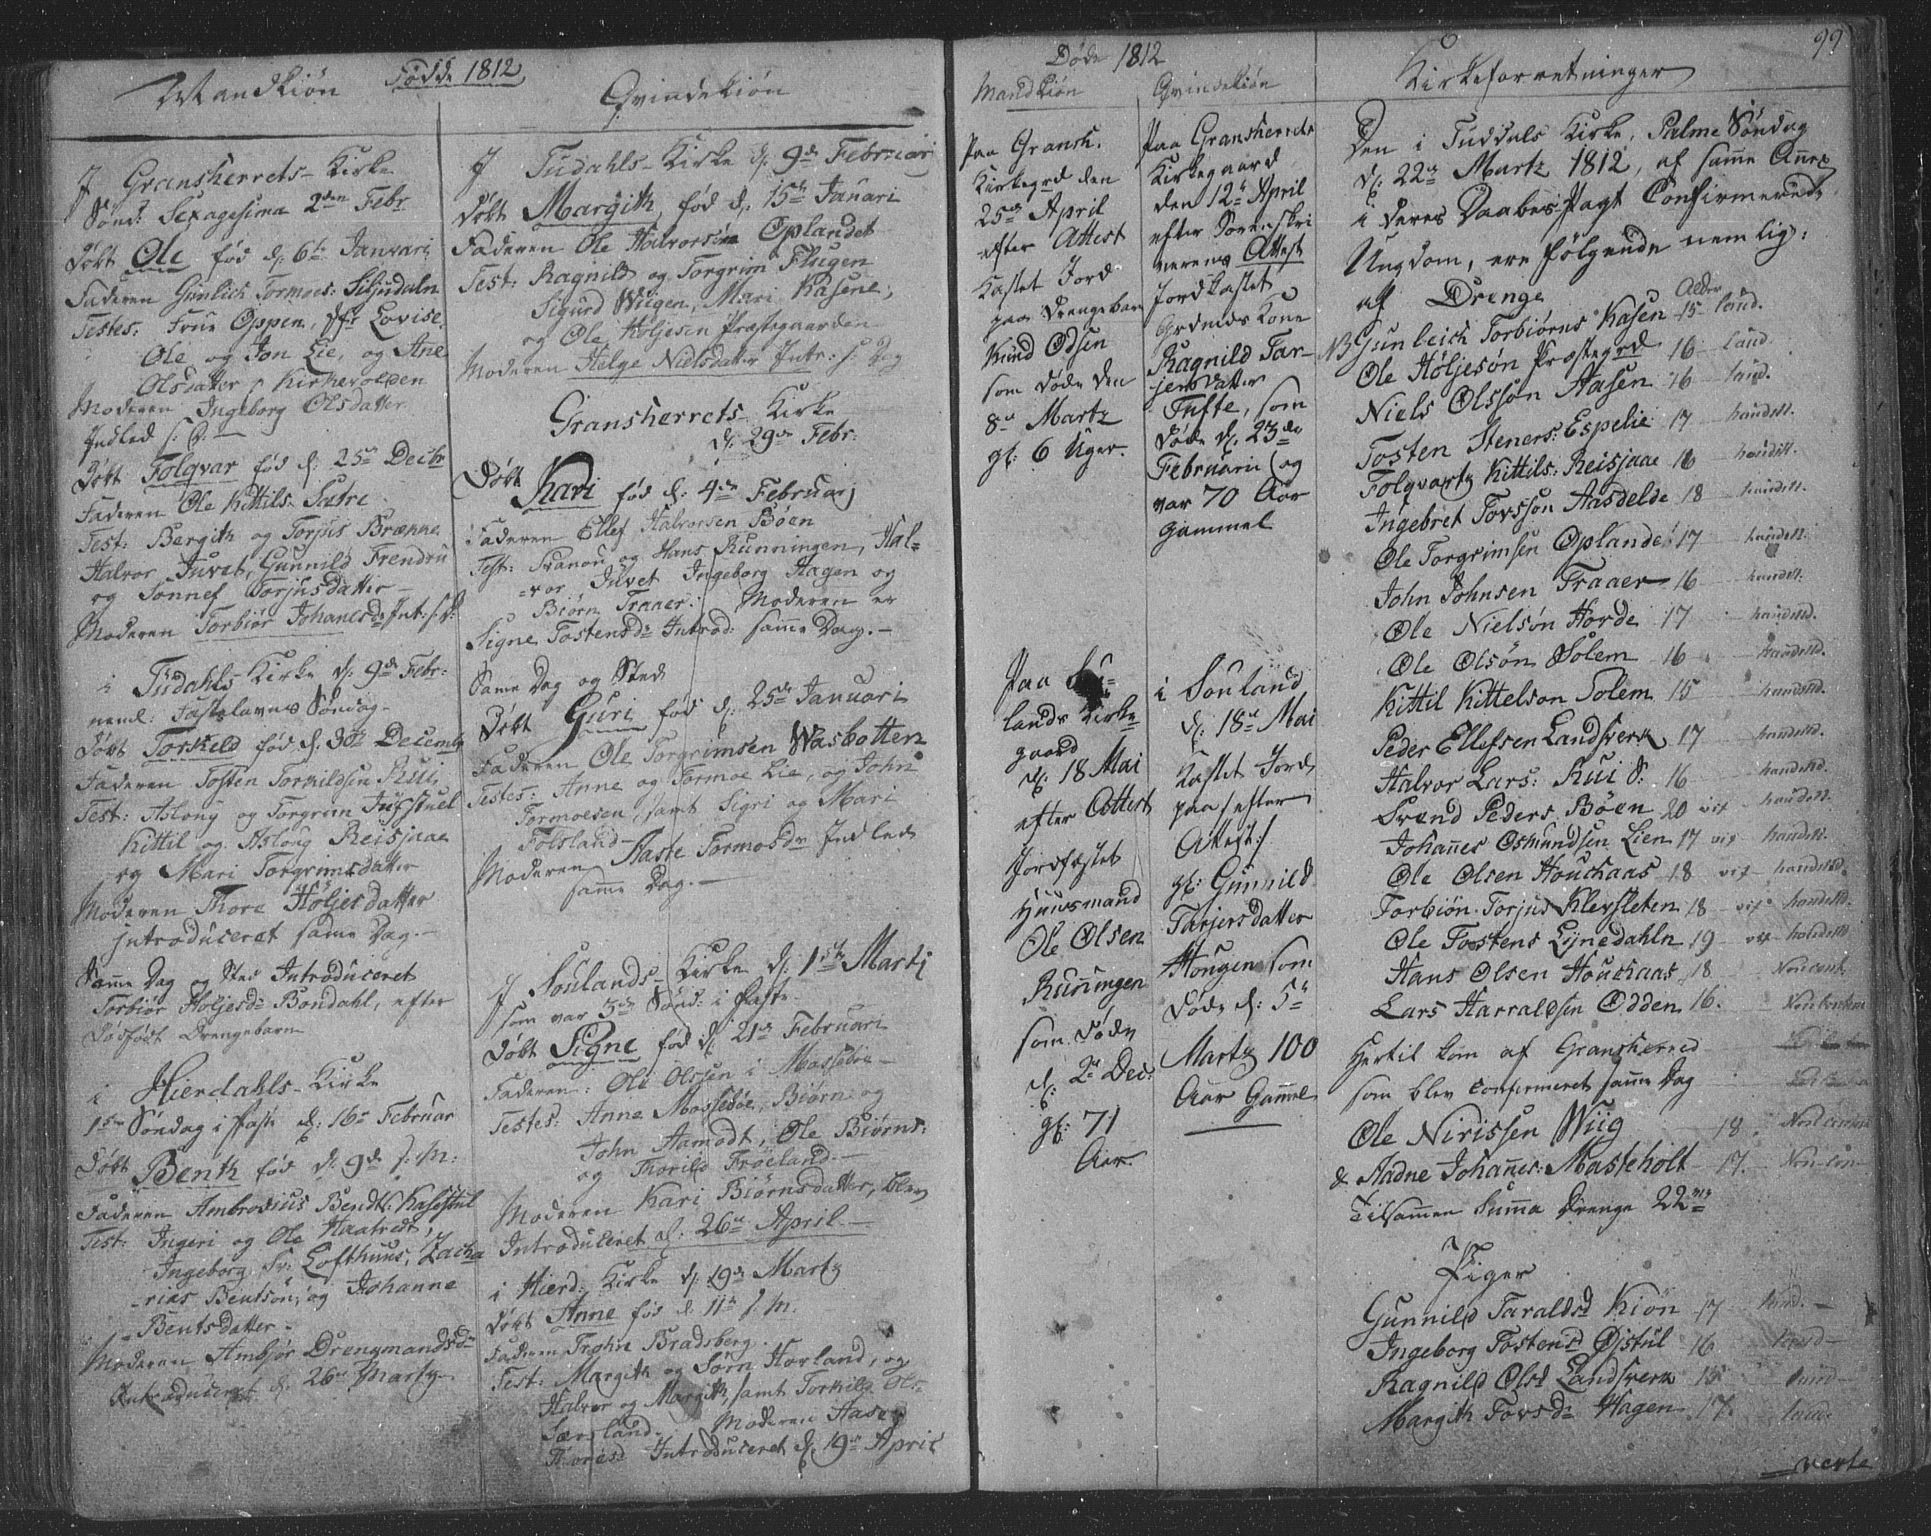 Födde 1812
Mandkiön
J Gransherrets Kirke
Sönd: Sexagesima 2den Febr
Döbt Ole föd d. 6te Januari
Faderen Gunlich Tormoes: Siljudaln
Testes. Oppen,
Ole og Jon Lie, og Ane
Olsdatter Kirkevolden
Moderen Ingeborg Olsdatter
Indled s. D.
Döbt Folqvar föd d. 25de Decbr
Faderen Ole Kittils. Satre
Test: Bergith og Torjus Brænne
Halvor Juvet, Gunnild Frendru
og Sonnef Torjusdatter
Moderen Torbiör Johanesdr Int: s. d.
i Tudahls Kirke d. 9de Febr:
neml: Fastelavns Söndag
Döbt Torkeld föd d. 30te Decemb
Faderen Tosten Torkildsen Rui
Test: Aslaug og Torgrim
Kittil og Aslaug Reisjaae
og Mari Torgrimsdatter
Moderen Thore Höljesdatter
Introduceret same Dag.
Same Dag og Sted Introduceret
Torbiör Höljesdr Bondahl, efter
Dödfödt Drengebarn
i Hierdahls Kirke
1ste Söndag i Faste d. 16de Februar
Döbt Benth föd d. 9de s. M.
Faderen Ambrosius Bendts:
Test: Ingeri og Ole Haatvedt,
Ingeborg Sv: Lofthuus, Zacha
rias Bentsön, og Johanne
Bentsdatter
Moderen Ambjör Drengmandsdr
Introduceret d. 26de Martz
Qvindekiön
J Tudahls Kirke d. 9de Februari
Döbt Margith, föd d. 15de Januari
Faderen Ole Halvorsön Oplandet
Test: Ragnild og Torgrim Flugen
Sigurd Wiigen, Mari Kasene,
og Ole Höljesen Præstegaarden
Moderen Helge Nielsdatter Intr: s. Dag
Gransherrets Kirke
d. 29de Febr:
Döbt Kari föd d. 4de Februarj
Faderen Ellef Halvorsen Böen
Test: Svanou og Hans Runningen, Hal=
=vor Juvet Ingeborg Hagen og
Biörn Traaer: Moderen er
Signe Tostensdr Introd: samme Dag.
Same Dag og Sted
Döbt Guri föd d. 25de Januari
Faderen Ole Torgrimsen Wasbotten
Testes: Anne og Tormoe Lie, og John
Tormoesen, samt Sigri og Mari
Folsland
Moderen Aaste Tormosdr Indled
samme Dag.
J Soulands Kirke d. 1ste Martj
som var 3die Sönd: i Faste
Döbt Signe föd d. 21de Februari
Faderen: Ole Olssen i Mosseböe
Testes: Anne Mossebøe, Biörn og
John Aamodt, Ole Biörns:
og Thorild Fröeland.
Moderen Kari Biörnsdatter, blev
Introduceret d. 26de April
i Hierd: Kirke d. 19de Martz
Döbt Anne föd d. 11te s. M.
Faderen Trohne Bradsberg.
Test: Margith og Sörn Horland, og
Halvor og Margith, samt Torkild Ols
Sæsland. Moderen Aase
Introduceret d. 19de April
Döde 1812
Mandkiön
Paa Gransh.
Kirkegrd den
25de April
efter Attest
kastet Jord
paa Drengebarn
Knud Odsen
som döde den
8de Martz
gl: 6 Uger.
Paa
lands Kirke
gaard
d. 18 Mai
efter Attest
Jordfæstet
Huusmand
Ole Olsen
Runingen
som döde
d. 2de Dec:
gl: 71
Aar.
Qvindekiön
Paa Gransherrets
Kirkegaard
den 12te April
efter Sorenskri
verens Attest
Jordkastet
Kone
Ragnild Tar-
jersdatter
Tufte, som
döde d. 23de
Februarii og
var 70 Aar
gammel
i Souland
d. 18de Mai
kastet Jord
paa efter
Attest
gl: Gunnild
Tarjersdatter
Hongen som
döde d. 5te
Martz 100
Aar Gammel
99
Kirkeforretninger
Den i Tuddals Kirke, Palme Söndag
d. 22de Martz 1812, af same Annex
i deres Daabes-Pagt Confirmerede
Ungdom, ere følgende nemlig:
af Drenge Alder
NB Gunleich Torbiörns Kasen 15 land.
Ole Höljesön Prostegrd 16 land.
Niels Olssön Aasen 16 land.
Tosten Steners: Espelie 17 handell.
Folqvart Kittils: Reisjaae 16 handell.
Ingebret Tovssön Aasdelde 18 handell.
Ole Torgrimsen Oplande: 17 handell.
John Johnsen Traaer 16 handell.
Ole Nielsön Horde 17 handeld.
Ole Olsön Solem 16 handeld.
Kittil Kittelson Solem 15 handeld.
Peder Ellefsen Landsverk 17 handeld.
Halvor Lars: Rui S: 16 handeld.
Svend Peders. Böen 20 vis handell.
Johannes Osmundsen Lien 17 vis handell.
Ole Olsen Houckaas 18 vis handeld.
Torbiön Torjus Klevsleten 18 vis handeld.
Ole Tostens Lynedahln 19 vis handeld.
Hans Olsen Houckaas 18 Noncont.
Lars Harraldsen Odden 16.
Hertil kom af Gransherred
som blev confirmeret samme Dag
Ole Nirissen Wiig 18.
& Aadne Johannes: Masteholt 17. Non con
Tilsammen Summa Drenge 22
Piger
Gunnild Taraldsd Kiön 17 land.
Ingeborg Tostensd Östul 16 land
Ragnild Olsd Landsverk 15 land
Margith Tovsdr Hagen 17. land.
verte